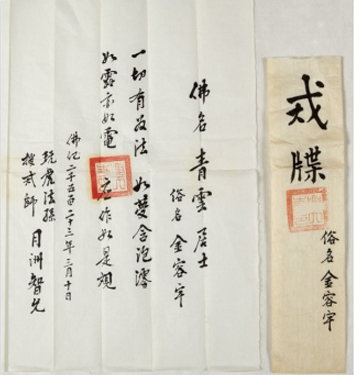 戒牒
俗名 金容宇
佛名 青雲 居士
俗名 金容宇
一切有為法 如夢幻泡影
如露亦如電 应作如是観
佛紀二千五百二十三年三月十日
法孫
授戒師 月洲智允